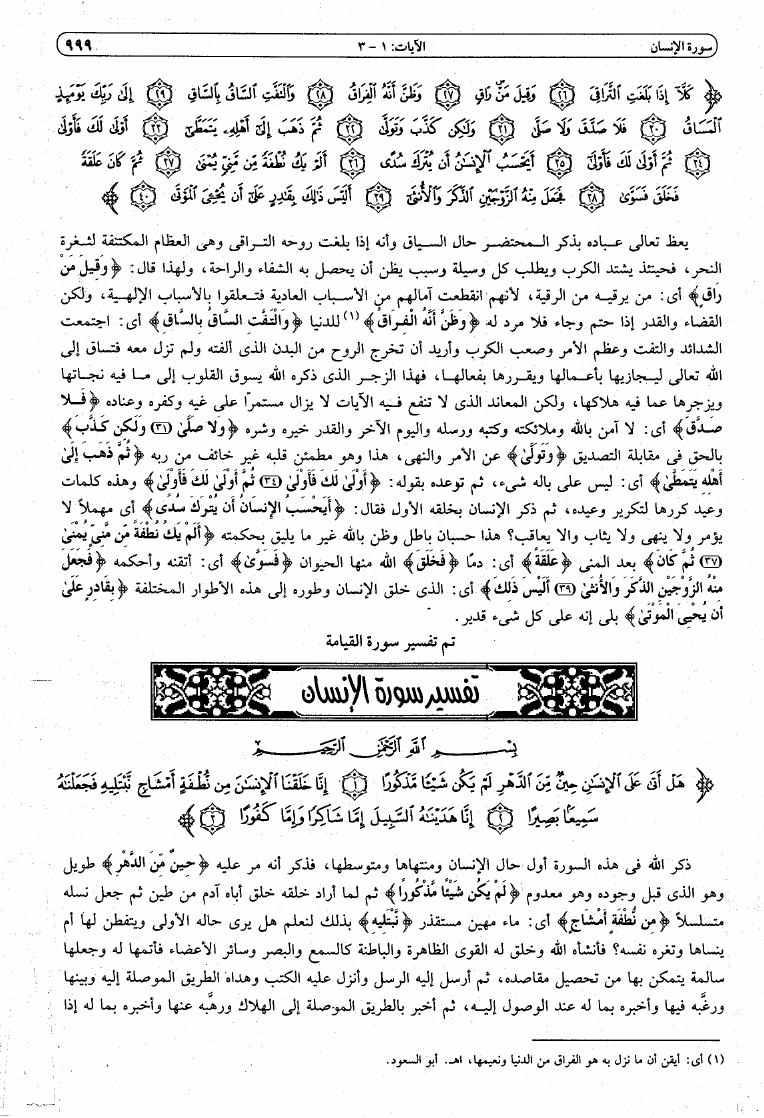 سورة الإنسان الآيات: ١ - ٣ ٩٩٩
﴿ كَلَّا إِذَا بَلَغَتِ التَّرَاقِيَ ٢٦ وَقِيلَ مَنْ رَاقٍ ٢٧ وَظَنَّ أَنَّهُ الْفِرَاقُ ٢٨ وَالْتَفَّتِ السَّاقُ بِالسَّاقِ ٢٩ إِلَى رَبِّكَ يَوْمَئِذٍ
الْمَسَاقُ ٣٠ فَلَا صَدَّقَ وَلَا صَلَّى ٣١ وَلَكِنْ كَذَّبَ وَتَوَلَّى ٣٢ ثُمَّ ذَهَبَ إِلَى أَهْلِهِ يَتَمَطَّى ٣٣ أَوْلَى لَكَ فَأَوْلَى
٣٤ ثُمَّ أَوْلَى لَكَ فَأَوْلَى ٣٥ أَيَحْسَبُ الْإِنْسَانُ أَنْ يُتْرَكَ سُدًى ٣٦ أَلَمْ يَكُ نُطْفَةً مِنْ مَنِيٍّ يُمْنَى ٣٧ ثُمَّ كَانَ عَلَقَةً
فَخَلَقَ فَسَوَّى ٣٨ فَجَعَلَ مِنْهُ الزَّوْجَيْنِ الذَّكَرَ وَالْأُنْثَى ٣٩ أَلَيْسَ ذَلِكَ بِقَادِرٍ عَلَى أَنْ يُحْيِيَ الْمَوْتَى ٤٠ ﴾
يعظ تعالى عباده بذكر المحتضر حال السياق وأنه إذا بلغت روحه التراقى وهى العظام المكتنفة لثغرة
النحر، فحينئذ يشتد الكرب ويطلب كل وسيلة وسبب يظن أن يحصل به الشفاء والراحة، ولهذا قال: ﴿وَقِيلَ مَنْ
رَاقٍ﴾ أى: من يرقيه من الرقية، لأنهم انقطعت آمالهم من الأسباب العادية فتعلقوا بالأسباب الإلهية، ولكن
القضاء والقدر إذا حتم وجاء فلا مرد له ﴿وَظَنَّ أَنَّهُ الْفِرَاقُ﴾ (١) للدنيا ﴿وَالْتَفَّتِ السَّاقُ بِالسَّاقِ﴾ أى: اجتمعت
الشدائد والتفت وعظم الأمر وصعب الكرب وأريد أن تخرج الروح من البدن الذى ألفته ولم تزل معه فتساق إلى
الله تعالى ليجازيها بأعمالها ويقررها بفعالها، فهذا الزجر الذى ذكره الله يسوق القلوب إلى ما فيه نجاتها
ويزجرها عما فيه هلاكها، ولكن المعاند الذى لا تنفع فيه الآيات لا يزال مستمرًا على غيه وكفره وعناده ﴿فَلا
صَدَّقَ﴾ أى: لا آمن بالله وملائكته وكتبه ورسله واليوم الآخر والقدر خيره وشره ﴿وَلا صَلَّىٰ (٣١) وَلَكِن كَذَّبَ﴾
بالحق فى مقابلة التصديق ﴿وَتَوَلَّىٰ﴾ عن الأمر والنهى، هذا وهو مطمئن قلبه غير خائف من ربه ﴿ثُمَّ ذَهَبَ إِلَىٰ
أَهْلِهِ يَتَمَطَّىٰ﴾ أى: ليس على باله شىء، ثم توعده بقوله: ﴿أَوْلَىٰ لَكَ فَأَوْلَىٰ (٣٤) ثُمَّ أَوْلَىٰ لَكَ فَأَوْلَىٰ﴾ وهذه كلمات
وعيد كررها لتكرير وعيده، ثم ذكر الإنسان بخلقه الأول فقال: ﴿أَيَحْسَبُ الإِنسَانُ أَن يُتْرَكَ سُدًى﴾ أى مهملاً لا
يؤمر ولا ينهى ولا يثاب والا يعاقب؟ هذا حسبان باطل وظن بالله غير ما يليق بحكمته ﴿أَلَمْ يَكُ نُطْفَةً مِّن مَّنِيٍّ يُمْنَىٰ
(٣٧) ثُمَّ كَانَ﴾ بعد المنى ﴿عَلَقَةً﴾ أى: دمًا ﴿فَخَلَقَ﴾ الله منها الحيوان ﴿فَسَوَّىٰ﴾ أى: أتقنه وأحكمه ﴿فَجَعَلَ
مِنْهُ الزَّوْجَيْنِ الذَّكَرَ وَالأُنثَىٰ (٣٩) أَلَيْسَ ذَلِكَ﴾ أى: الذى خلق الإنسان وطوره إلى هذه الأطوار المختلفة ﴿بِقَادِرٍ عَلَىٰ
أَن يُحْيِيَ الْمَوْتَىٰ﴾ بلى إنه على كل شىء قدير.
تم تفسير سورة القيامة
تفسير سورة الإنسان
بِسْمِ اللَّهِ الرَّحْمَنِ الرَّحِيمِ
﴿ هَلْ أَتَى عَلَى الْإِنْسَانِ حِينٌ مِنَ الدَّهْرِ لَمْ يَكُنْ شَيْئًا مَذْكُورًا ١ إِنَّا خَلَقْنَا الْإِنْسَانَ مِنْ نُطْفَةٍ أَمْشَاجٍ نَبْتَلِيهِ فَجَعَلْنَاهُ
سَمِيعًا بَصِيرًا ٢ إِنَّا هَدَيْنَاهُ السَّبِيلَ إِمَّا شَاكِرًا وَإِمَّا كَفُورًا ٣ ﴾
ذكر الله فى هذه السورة أول حال الإنسان ومنتهاها ومتوسطها، فذكر أنه مر عليه ﴿حِينٌ مِّنَ الدَّهْرِ﴾ طويل
وهو الذى قبل وجوده وهو معدوم ﴿لَمْ يَكُن شَيْئًا مَّذْكُورًا﴾ ثم لما أراد خلقه خلق أباه آدم من طين ثم جعل نسله
متسلسلاً ﴿مِن نُّطْفَةٍ أَمْشَاجٍ﴾ أى: ماء مهين مستقذر ﴿نَّبْتَلِيهِ﴾ بذلك لنعلم هل يرى حاله الأولى ويتفطن لها أم
ينساها وتغره نفسه؟ فأنشأه الله وخلق له القوى الظاهرة والباطنة كالسمع والبصر وسائر الأعضاء فأتمها له وجعلها
سالمة يتمكن بها من تحصيل مقاصده، ثم أرسل إليه الرسل وأنزل عليه الكتب وهداه الطريق الموصلة إليه وبينها
ورغَّبه فيها وأخبره بما له عند الوصول إليه، ثم أخبر بالطريق الموصلة إلى الهلاك ورهَّبه عنها وأخبره بما له إذا
(١) أى: أيقن أن ما نزل به هو الفراق من الدنيا ونعيمها، اهـ. أبو السعود.